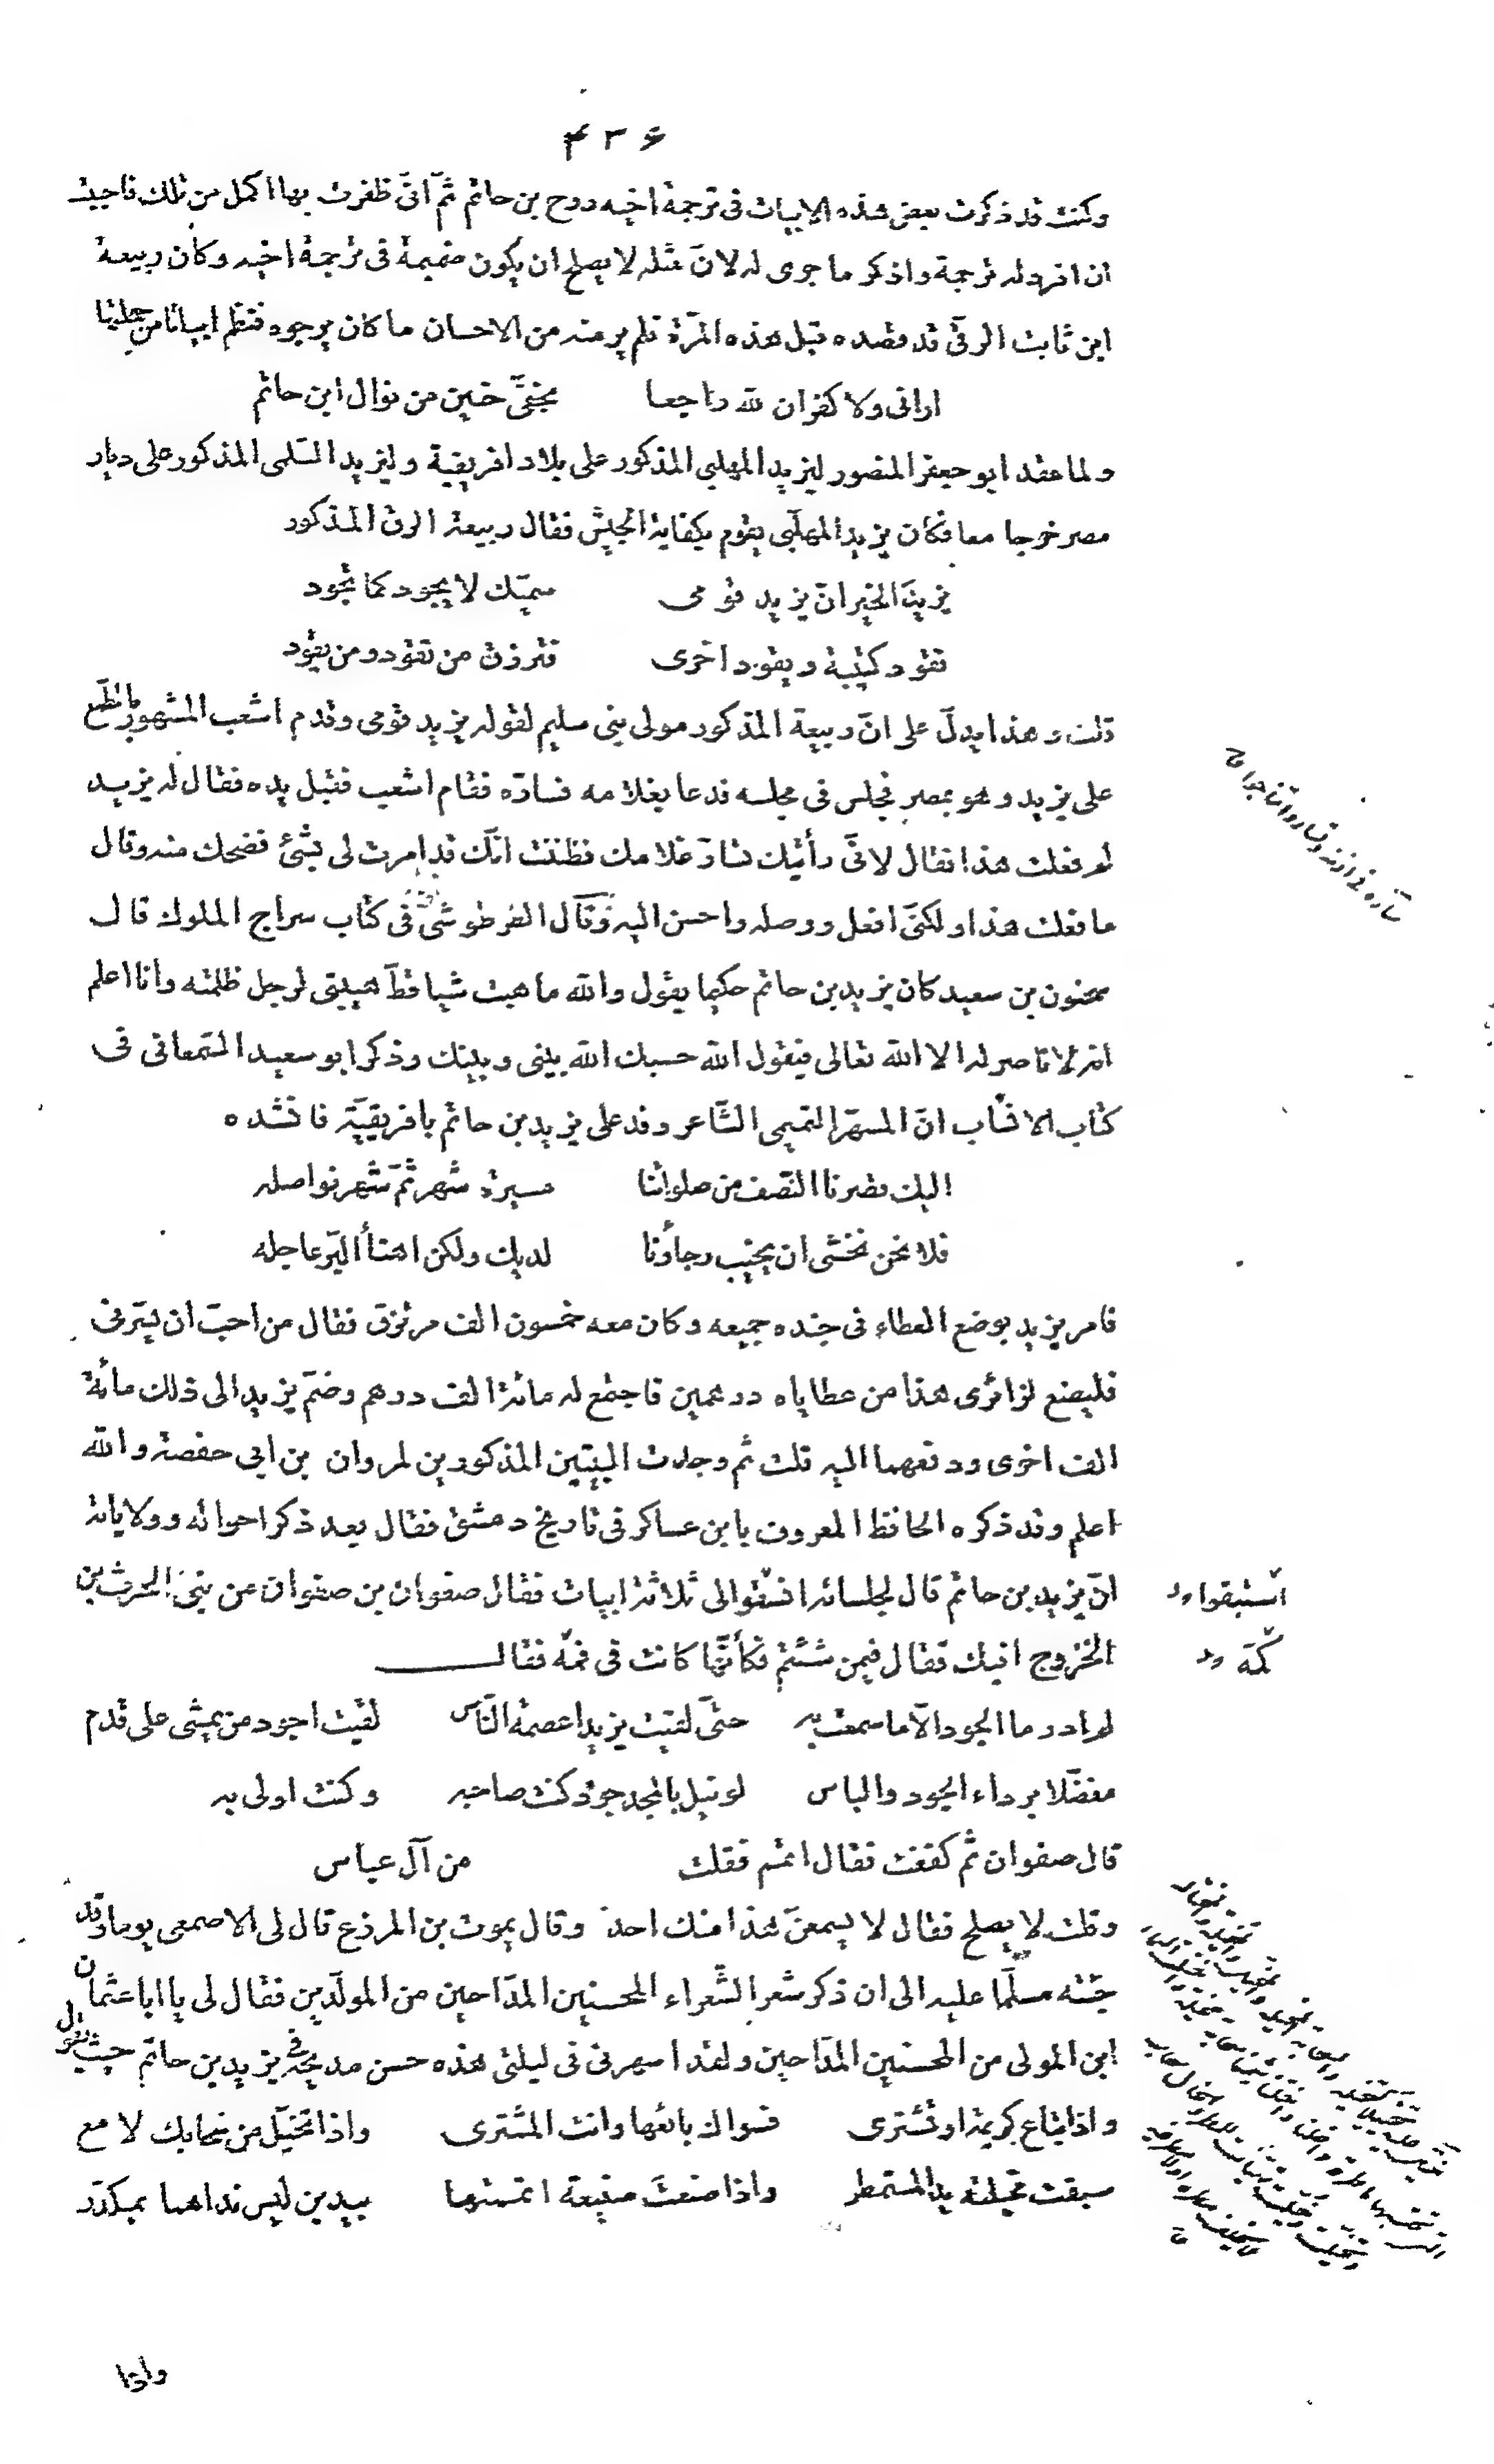 ۴۳۶
وكنت قد ذكرت بعض هذه الابيات فى ترجمة اخيه روح بن حاتم ثمّ انّى ظفرت بها اكمل من تلك فاحببت
ان افرد له ترجمة واذكر ما جرى له لانّ مثله لا يصلح ان يكون ضميمة فى ترجمة اخيه وكان ربيعة
ابن ثابت الرقّى قد قصده قبل هذه المرّة فلم ير منه من الاحسان ما كان يرجوه فنظم ابياتا من جملتها
ارانى ولا كفران لله راجعا بخفّى حنين من نوال ابن حاتم
ولما عقد ابو جعفر المنصور ليزيد المهلبى المذكور على بلاد افريقية وليزيد السّلمى المذكور على ديار
مصر خرجا معا فكان يزيد المهلّبى يقوم بكفاية الجيش فقال ربيعة الرقى المذكور
يزيد الخير انّ يزيد قومى سميّك لا يجود كما تجود
تقود كتيبة ويقود اخرى فترزق من تقود ومن يقود
قلت وهذا يدلّ على انّ ربيعة المذكور مولى بنى سليم لقوله يزيد قومى وقدم اشعب المشهور بالطّمع
على يزيد وهو بمصر فجلس فى مجلسه فدعا بغلامه فسارّه فقام اشعب فقبل يده فقال له يزيد
لم فعلت هذا فقال لانّى رأيتك تسارّ غلامك فظننت انّك قد امرت لى بشئ فضحك منه وقال
ما فعلت هذا ولكنّى افعل ووصله واحسن اليه وقال الطرطوشىّ فى كتاب سراج الملوك قال
سحنون بن سعيد كان يزيد بن حاتم حكيما يقول والله ما هبت شيا قطّ هيبتى لرجل ظلمته وانا اعلم
انه لا ناصر له الا الله تعالى فيقول الله حسبك الله بينى وبينك وذكر ابو سعيد السّمعانى فى
كتاب الانساب انّ المسهّر التميمى الشّاعر وفد على يزيد بن حاتم بافريقيّة فانشده
اليك قصرنا النّصف من صلواتنا مسيرة شهر ثمّ شهر نواصله
فلا نحن نخشى ان يخيب رجاؤنا لديك ولكن اهنأ البرّ عاجله
فامر يزيد بوضع العطاء فى جنده جميعه وكان معه خمسون الف مرتزق فقال من احبّ ان يسّرنى
فليضع لزائرى هذا من عطاياه درهمين فاجتمع له مائة الف درهم وضمّ يزيد الى ذلك مائة
الف اخرى ودفعهما اليه قلت ثم وجدت البيتين المذكورين لمروان بن ابى حفصة والله
اعلم وقد ذكره الحافظ المعروف بابن عساكر فى تاريخ دمشق فقال بعد ذكر احواله وولاياته
انّ يزيد بن حاتم قال لجلسائه انسقوا لى ثلاثة ابيات فقال صفوان بن صفوان من بنى الحرث بن
استبقوا
الخزرج افيك فقال فيمن شئتم فكأنّها كانت فى فمّه فقال
كمّه
لم ادر ما الجود الّا ما سمعت به حتّى لقيت يزيدا عصمة النّاس لقيت اجود من يمشى على قدم
مفضّلا برداء الجود والباس لو نيل بالمجد جود كنت صاحبه وكنت اولى به
قال صفوان ثم كففت فقال اتمم فقلت من آل عباس
وقلت لا يصلح فقال لا يسمعنّ هذا منك احد وقال يموت بن المزرع قال لى الاصمعى يوما وقد
جئته مسلّما عليه الى ان ذكر شعر الشّعراء المحسنين المدّاحين من المولّدين فقال لى يا ابا عثمان
ابن المولى من المحسنين المدّاحين ولقد اسهرنى فى ليلتى هذه حسن مديحه فى يزيد بن حاتم حيث يقول
واذا تباع كريمة او تشترى فسواك بائعها وانت المشترى واذا تخيّل من سحابك لامع
سبقت مخيلته يد المستمطر واذا صنعت صنيعة اتممتها بيدين ليس نداهما بمكدّر
واذا